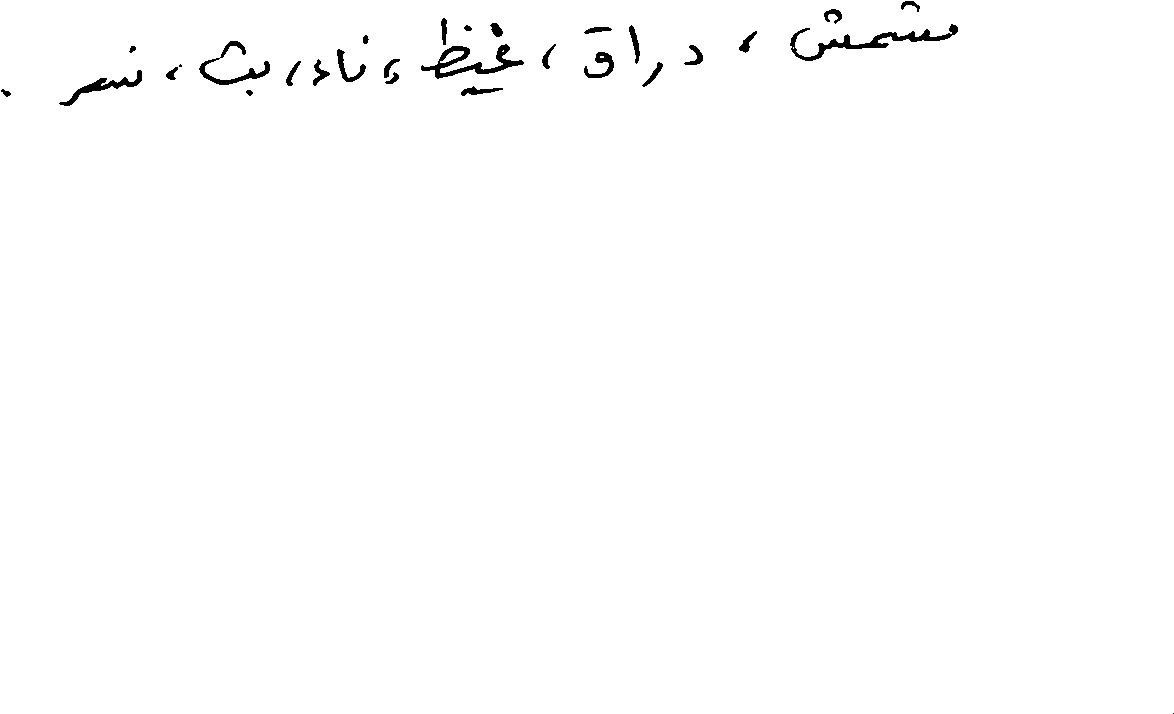 مشمش ، دراق ، غيظ ، ناء ، بث ، نسر .